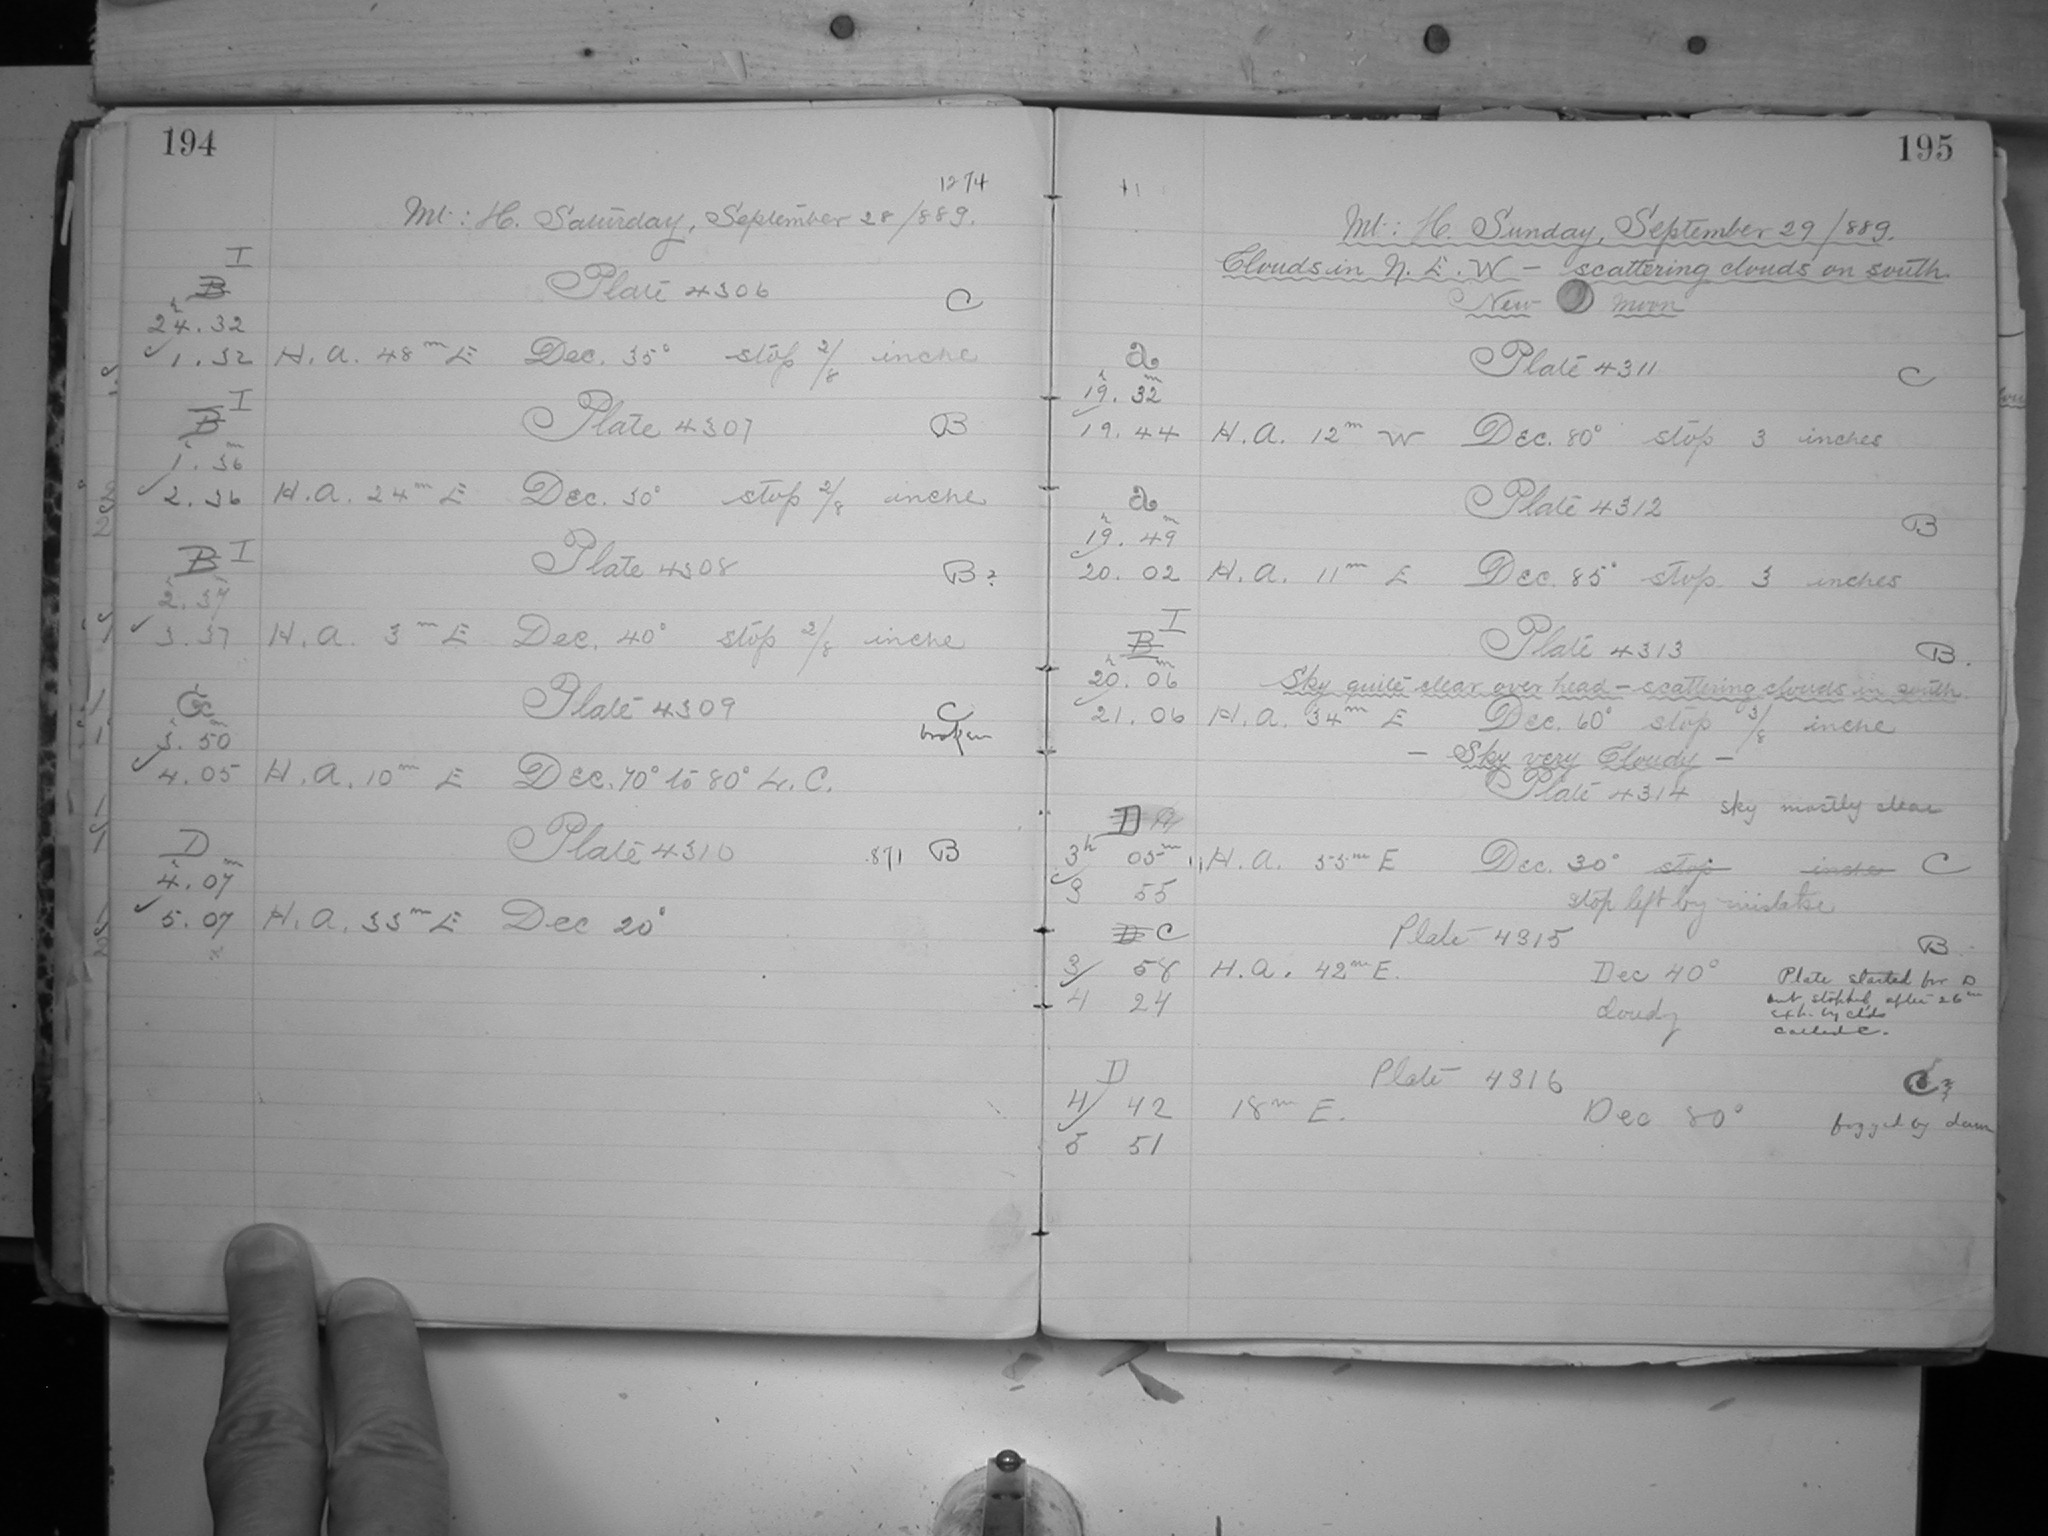 194
1274
Mt: H. Saturday, September 28/889.
I
B
Plate 4306
C
24.32
1.32 H.A. 48m E Dec. 35° stop 2/8 inche
I
B
Plate 4307
B
1.36
2.36 H.A. 24m E Dec. 30° stop 2/8 inche
B I
Plate 4308
B?
2.37
3.37 H.A. 3m E Dec. 40° stop 2/8 inche
Plate 4309
C
broken
3.50
4.05 H.A. 10m E Dec. 70° to 80° L.C.
D
Plate 4310
871 B
4.07
5.07 H.A. 33m E Dec 20°
195
Mt: H. Sunday, September 29/889.
Clouds in N. E. W – scattering clouds on south
New moon
a
Plate 4311
C
19h. 32m
19.44 H.A. 12m W Dec. 80° stop 3 inches
a
Plate 4312
B
19h. 49m
20.02 H.A. 11m E Dec. 85° stop 3 inches
I
B
Plate 4313
B.
20h. 06m Sky quite clear over head – scattering clouds in south
21.06 H.A. 34m E Dec. 60° stop 3/8 inche
– Sky very Cloudy –
Plate 4314 sky mostly clear
D
3h 05m H.A. 53m E Dec. 30° stop inches C
3 55 stop left by mistake
D C Plate 4315
B
3 58 H.A. 42m E. Dec 40° Plate started for D
but stopped after 26m
4 24 cloudy exh. by clds
called C.
D Plate 4316 C?
4 42 18m E. Dec 80° fogged by dawn
5 51